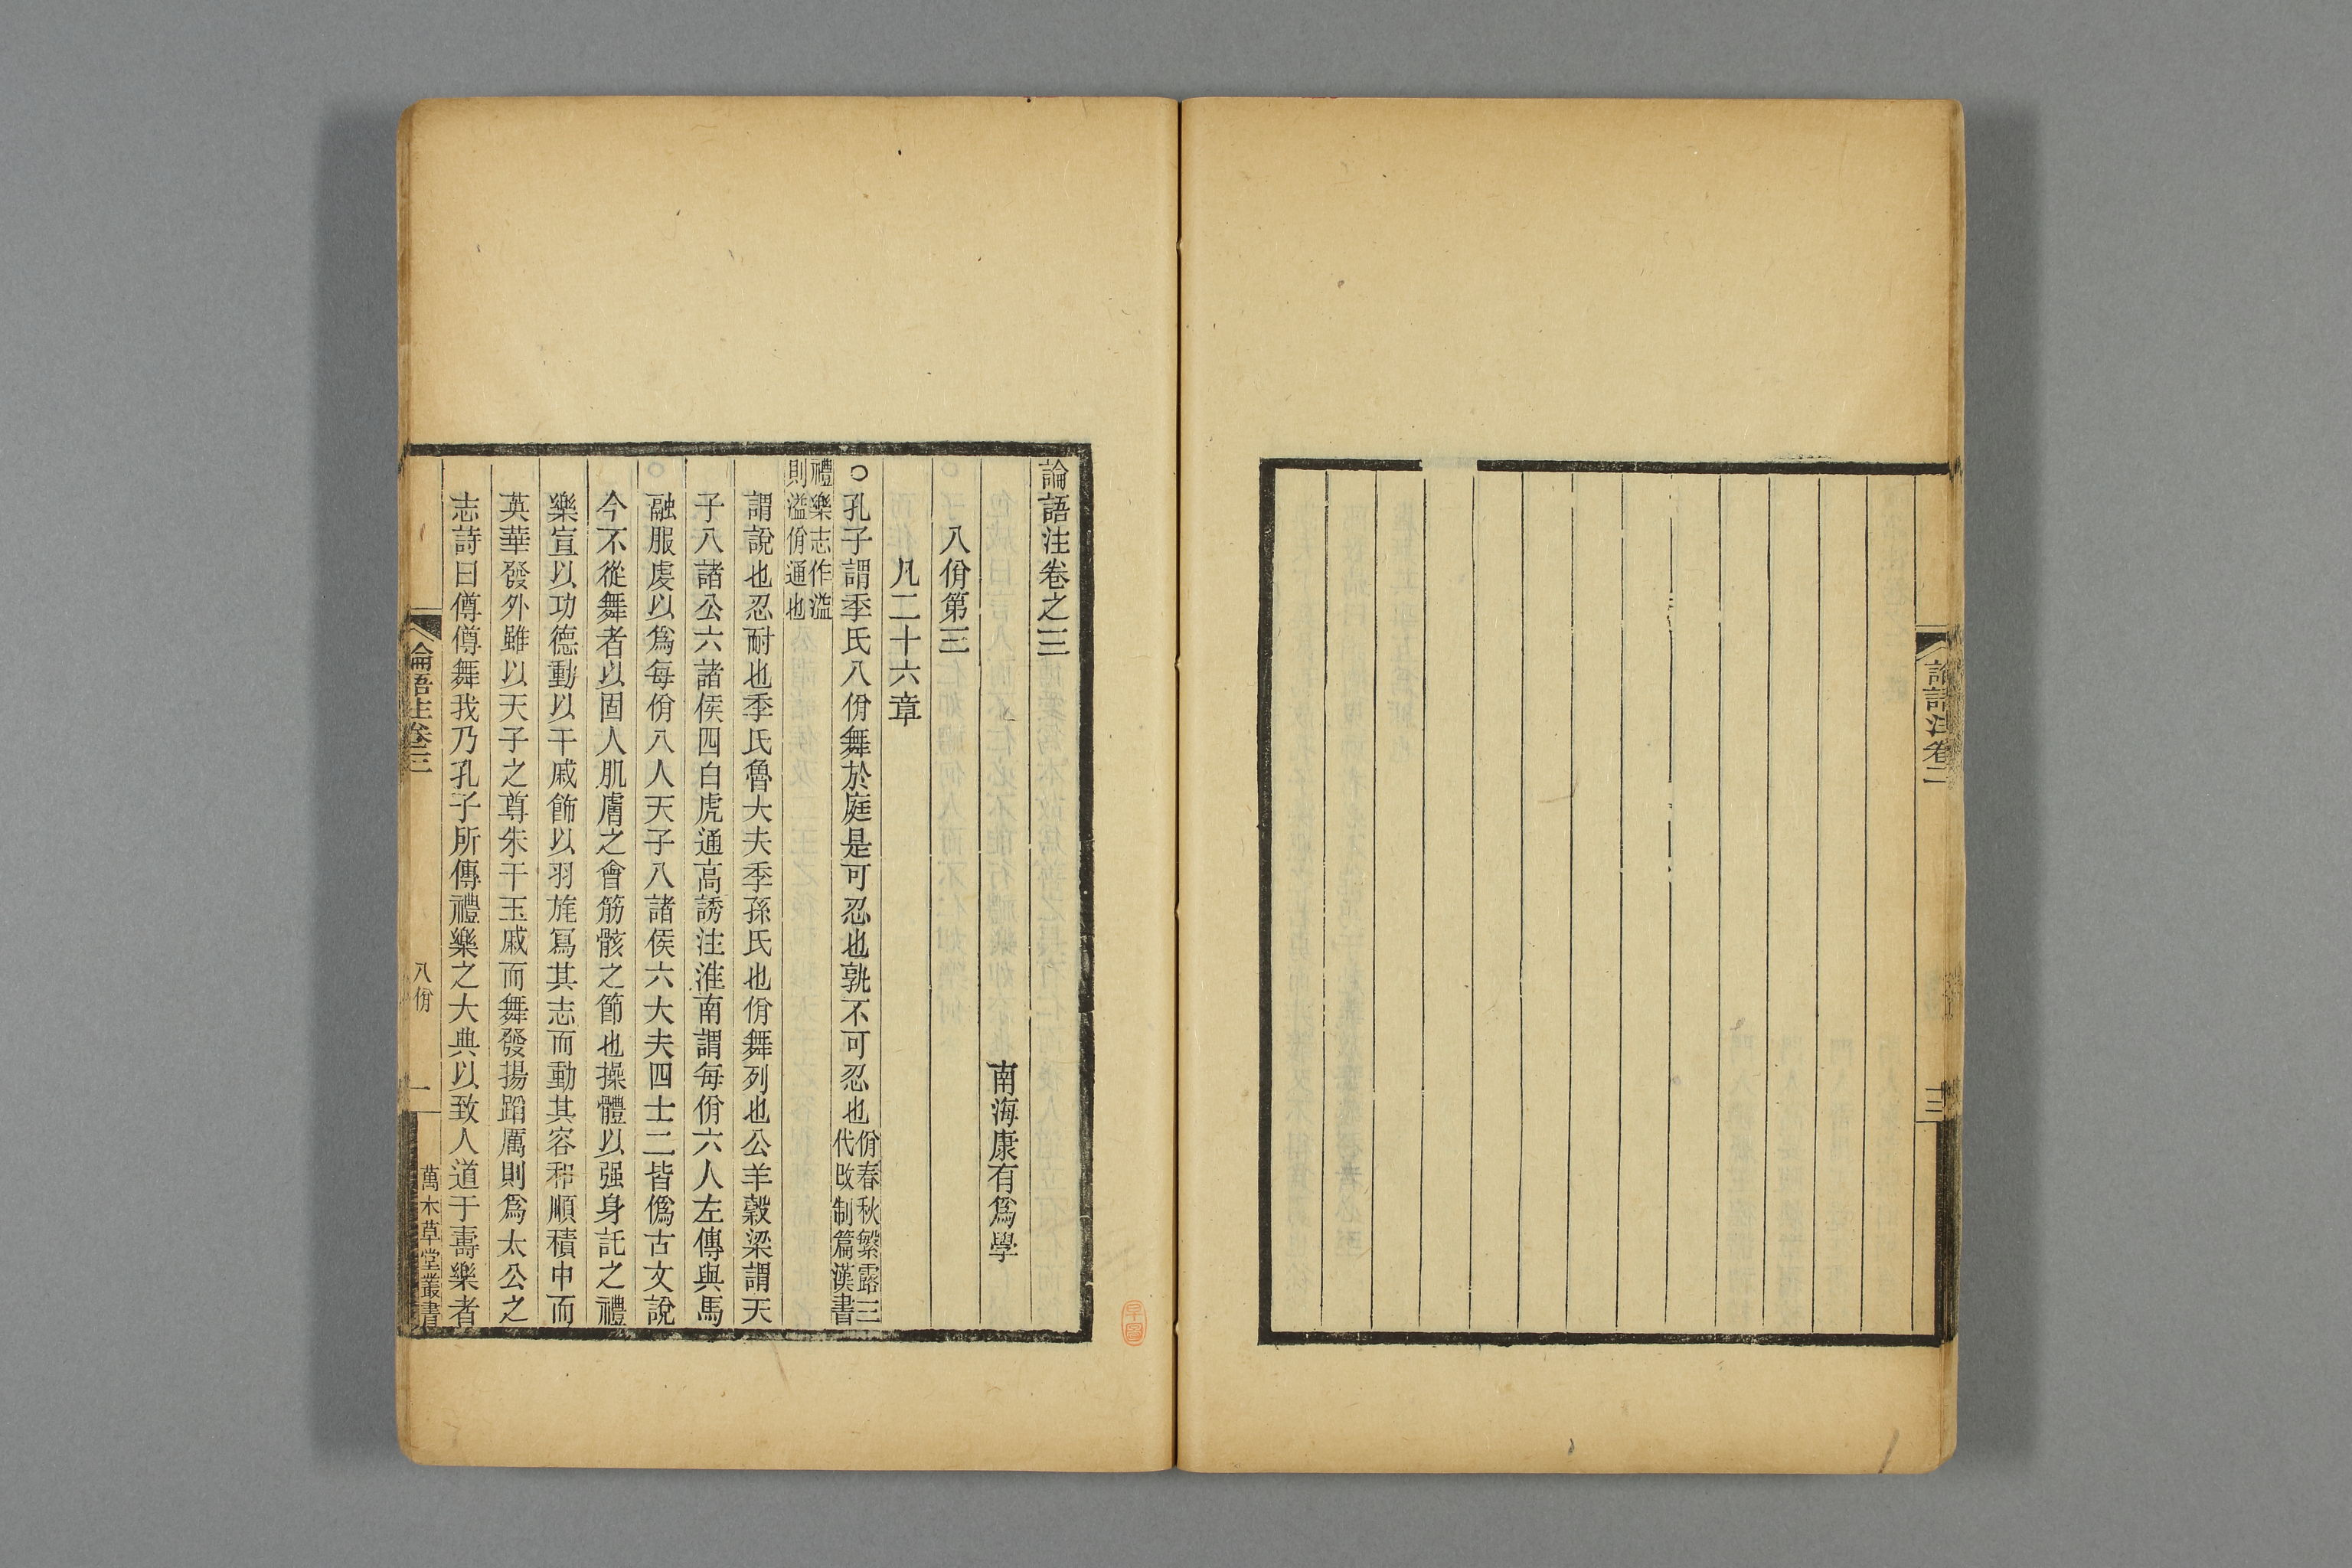 論語注卷二
十三
論語注卷之三
南海康有爲學
八佾第三
凡二十六章
○孔子謂季氏八佾舞於庭是可忍也孰不可忍也佾春秋繁露三代改制篇漢書
禮樂志作溢則溢佾通也
謂說也忍耐也季氏魯大夫季孫氏也佾舞列也公羊穀梁謂天
子八諸公六諸侯四白虎通高誘注淮南謂每佾六人左傳與馬
融服虔以爲每佾八人天子八諸侯六大夫四士二皆僞古文說
今不從舞者以固人肌膚之會筋骸之節也操體以强身託之禮
樂宣以功德動以干戚飾以羽旄冩其志而動其容和順積中而
英華發外雖以天子之尊朱干玉戚而舞發揚蹈厲則爲太公之
志詩曰僔僔舞我乃孔子所傳禮樂之大典以致人道于壽樂者
論語注卷三
八佾
一
萬木草堂叢書